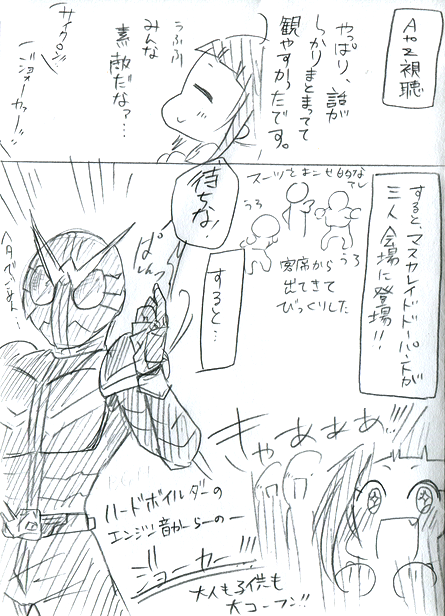 AtoZ視聴
やっぱり、話が
しっかりまとまってて
観やすかったです。
うふふ
みんな
素敵だなァ…
サイクロン
ジョーカー!
すると、マスカレイドドーパントが
三人、会場に登場!!
うろ
うろ
客席から
出てきて
びっくりした
待ちな!
すると…
きゃあぁぁぁ!!!
ハードボイルダーの
エンジン音からーのー
ジョーカー!!!
大人も子供も
大コーフン!!